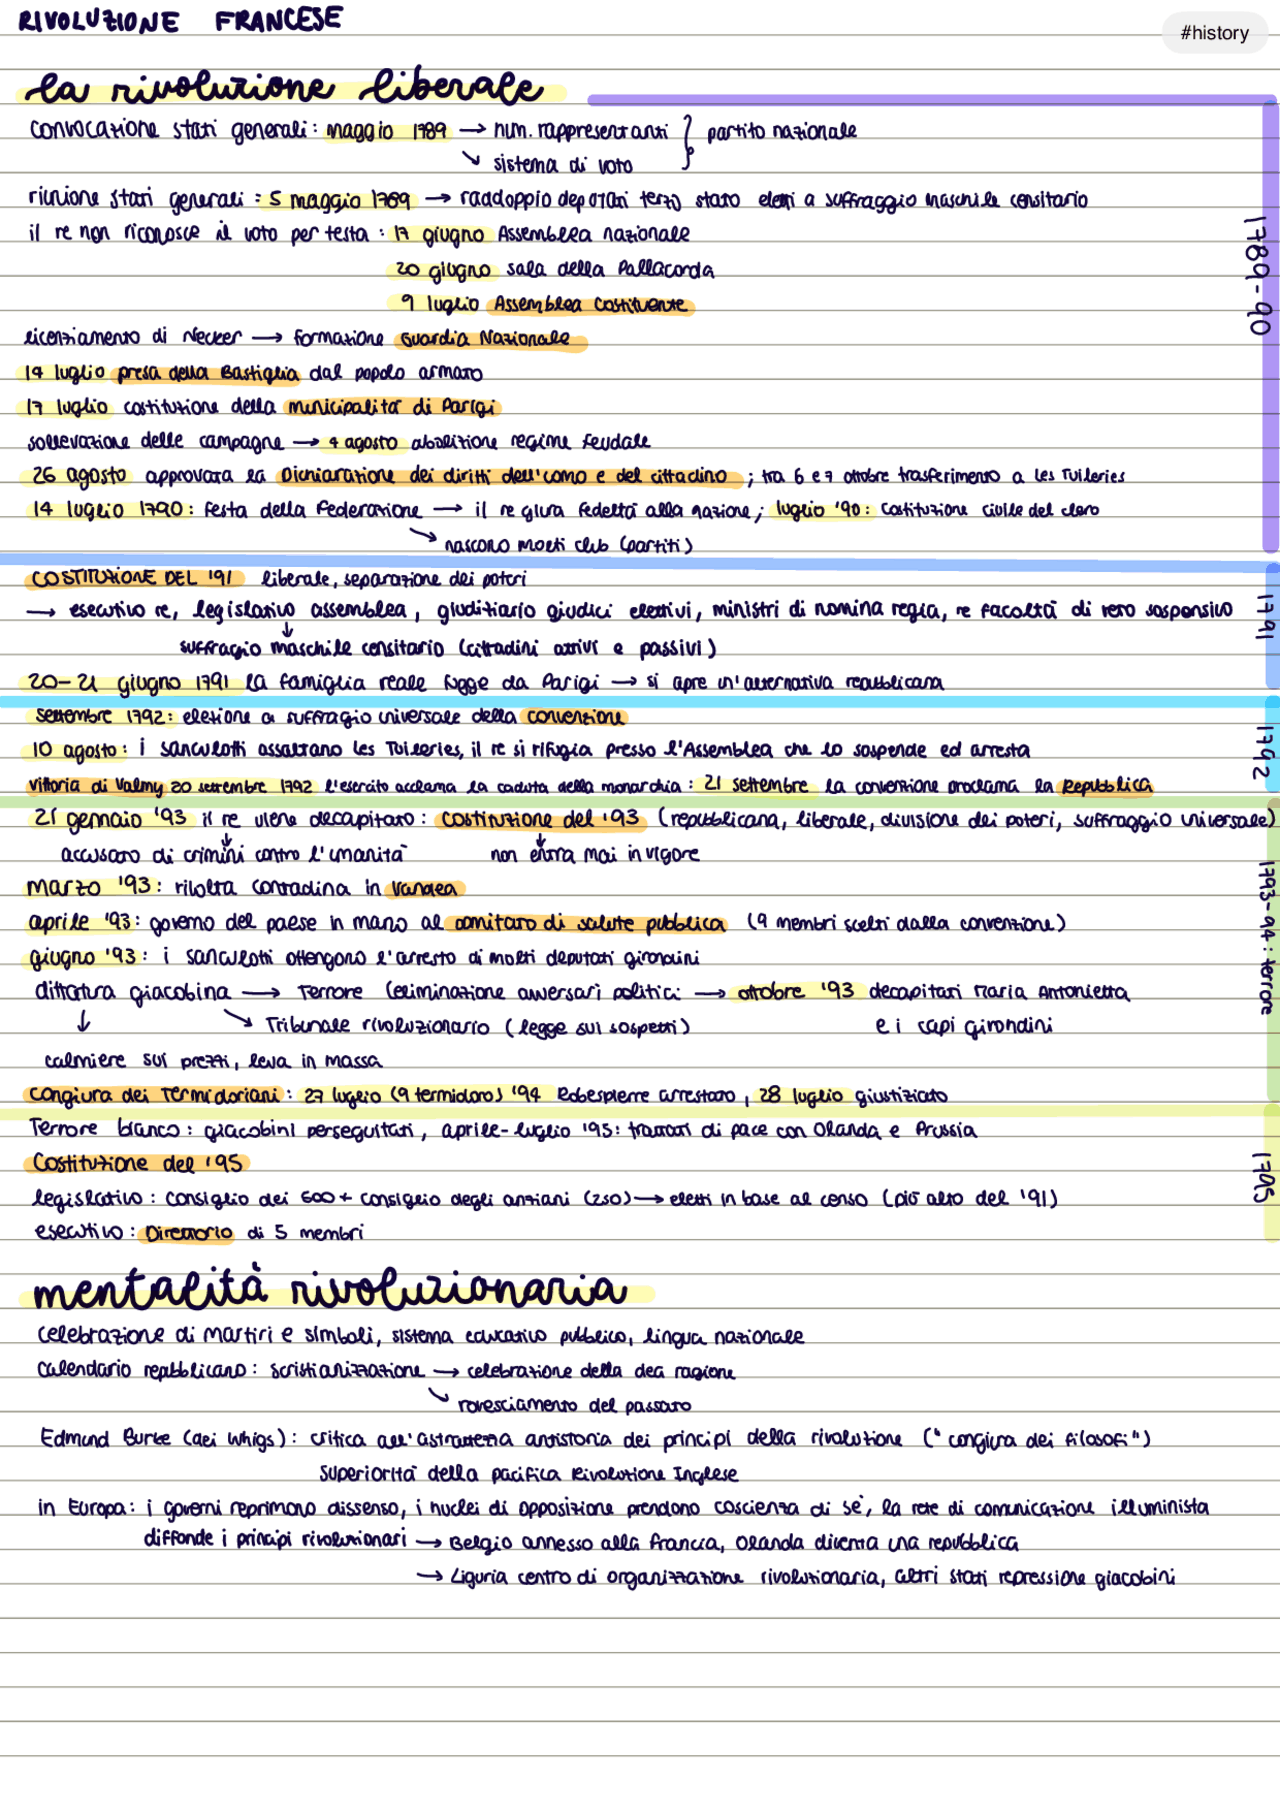 RIVOLUZIONE FRANCESE
#history
la rivoluzione liberale
convocazione stati generali: maggio 1789 → num. rappresentanti } partito nazionale
↘ sistema di voto
riunione stati generali: 5 maggio 1789 → raddoppio deputati terzo stato eletti a suffraggio maschile censitario
il re non riconosce il voto per testa: 17 giugno Assemblea nazionale
20 giugno sala della Pallacorda
9 luglio Assemblea Costituente
licenziamento di Necker → formazione Guardia Nazionale
14 luglio presa della Bastiglia dal popolo armato
17 luglio costituzione della municipalità di Parigi
sollevazione delle campagne → 4 agosto abolizione regime feudale
26 agosto approvata la Dichiarazione dei diritti dell'uomo e del cittadino; tra 6 e 7 ottobre trasferimento a Les Tuileries
14 luglio 1790: festa della Federazione → il re giura fedeltà alla nazione; luglio '90: Costituzione civile del clero
↘ nascono molti club (partiti)
1789-90
COSTITUZIONE DEL '91 liberale, separazione dei poteri
→ esecutivo re, legislativo assemblea, giuditiario giudici elettivi, ministri di nomina regia, re facoltà di veto sospensivo
↓
suffragio maschile censitario (cittadini attivi e passivi)
20-21 giugno 1791 la famiglia reale fugge da Parigi → si apre un'alternativa repubblicana
1791
settembre 1792: elezione a suffragio universale della convenzione
10 agosto: i sanculotti assaltano Les Tuileries, il re si rifugia presso l'Assemblea che lo sospende ed arresta
vittoria di Valmy 20 settembre 1792 l'esercito acclama la caduta della monarchia: 21 settembre la convenzione proclama la Repubblica
1792
21 gennaio '93 il re viene decapitato: costituzione del '93 (repubblicana, liberale, divisione dei poteri, suffraggio universale)
↓ ↓
accusato di crimini contro l'umanità non entra mai in vigore
marzo '93: rivolta contadina in Vandea
aprile '93: governo del paese in mano al comitato di salute pubblica (9 membri scelti dalla convenzione)
giugno '93: i sanculotti ottengono l'arresto di molti deputati girondini
dittatura giacobina → Terrore (eliminazione avversari politici → ottobre '93 decapitati Maria Antonietta
↓ ↘ Tribunale rivoluzionario (legge sui sospetti) e i capi girondini
calmiere sui prezzi, leva in massa
Congiura dei Termidoriani: 27 luglio (9 termidoro) '94 Robespierre arrestato, 28 luglio giustiziato
1793-94: terrore
Terrore bianco: giacobini perseguitati, aprile-luglio '95: trattati di pace con Olanda e Prussia
Costituzione del '95
legislativo: consiglio dei 500 + consiglio degli anziani (250) → eletti in base al censo (più alto del '91)
esecutivo: Direttorio di 5 membri
1795
mentalità rivoluzionaria
celebrazione di martiri e simboli, sistema educativo pubblico, lingua nazionale
calendario repubblicano: scristianizzazione → celebrazione della dea ragione
↘ rovesciamento del passato
Edmund Burke (dei Whigs): critica all'astrattezza antistoria dei principi della rivoluzione ("congiura dei filosofi")
superiorità della pacifica Rivoluzione Inglese
in Europa: i governi reprimono dissenso, i nuclei di opposizione prendono coscienza di sé, la rete di comunicazione illuminista
diffonde i principi rivoluzionari → Belgio annesso alla Francia, Olanda diventa una repubblica
→ Liguria centro di organizzazione rivoluzionaria, altri stati repressione giacobini